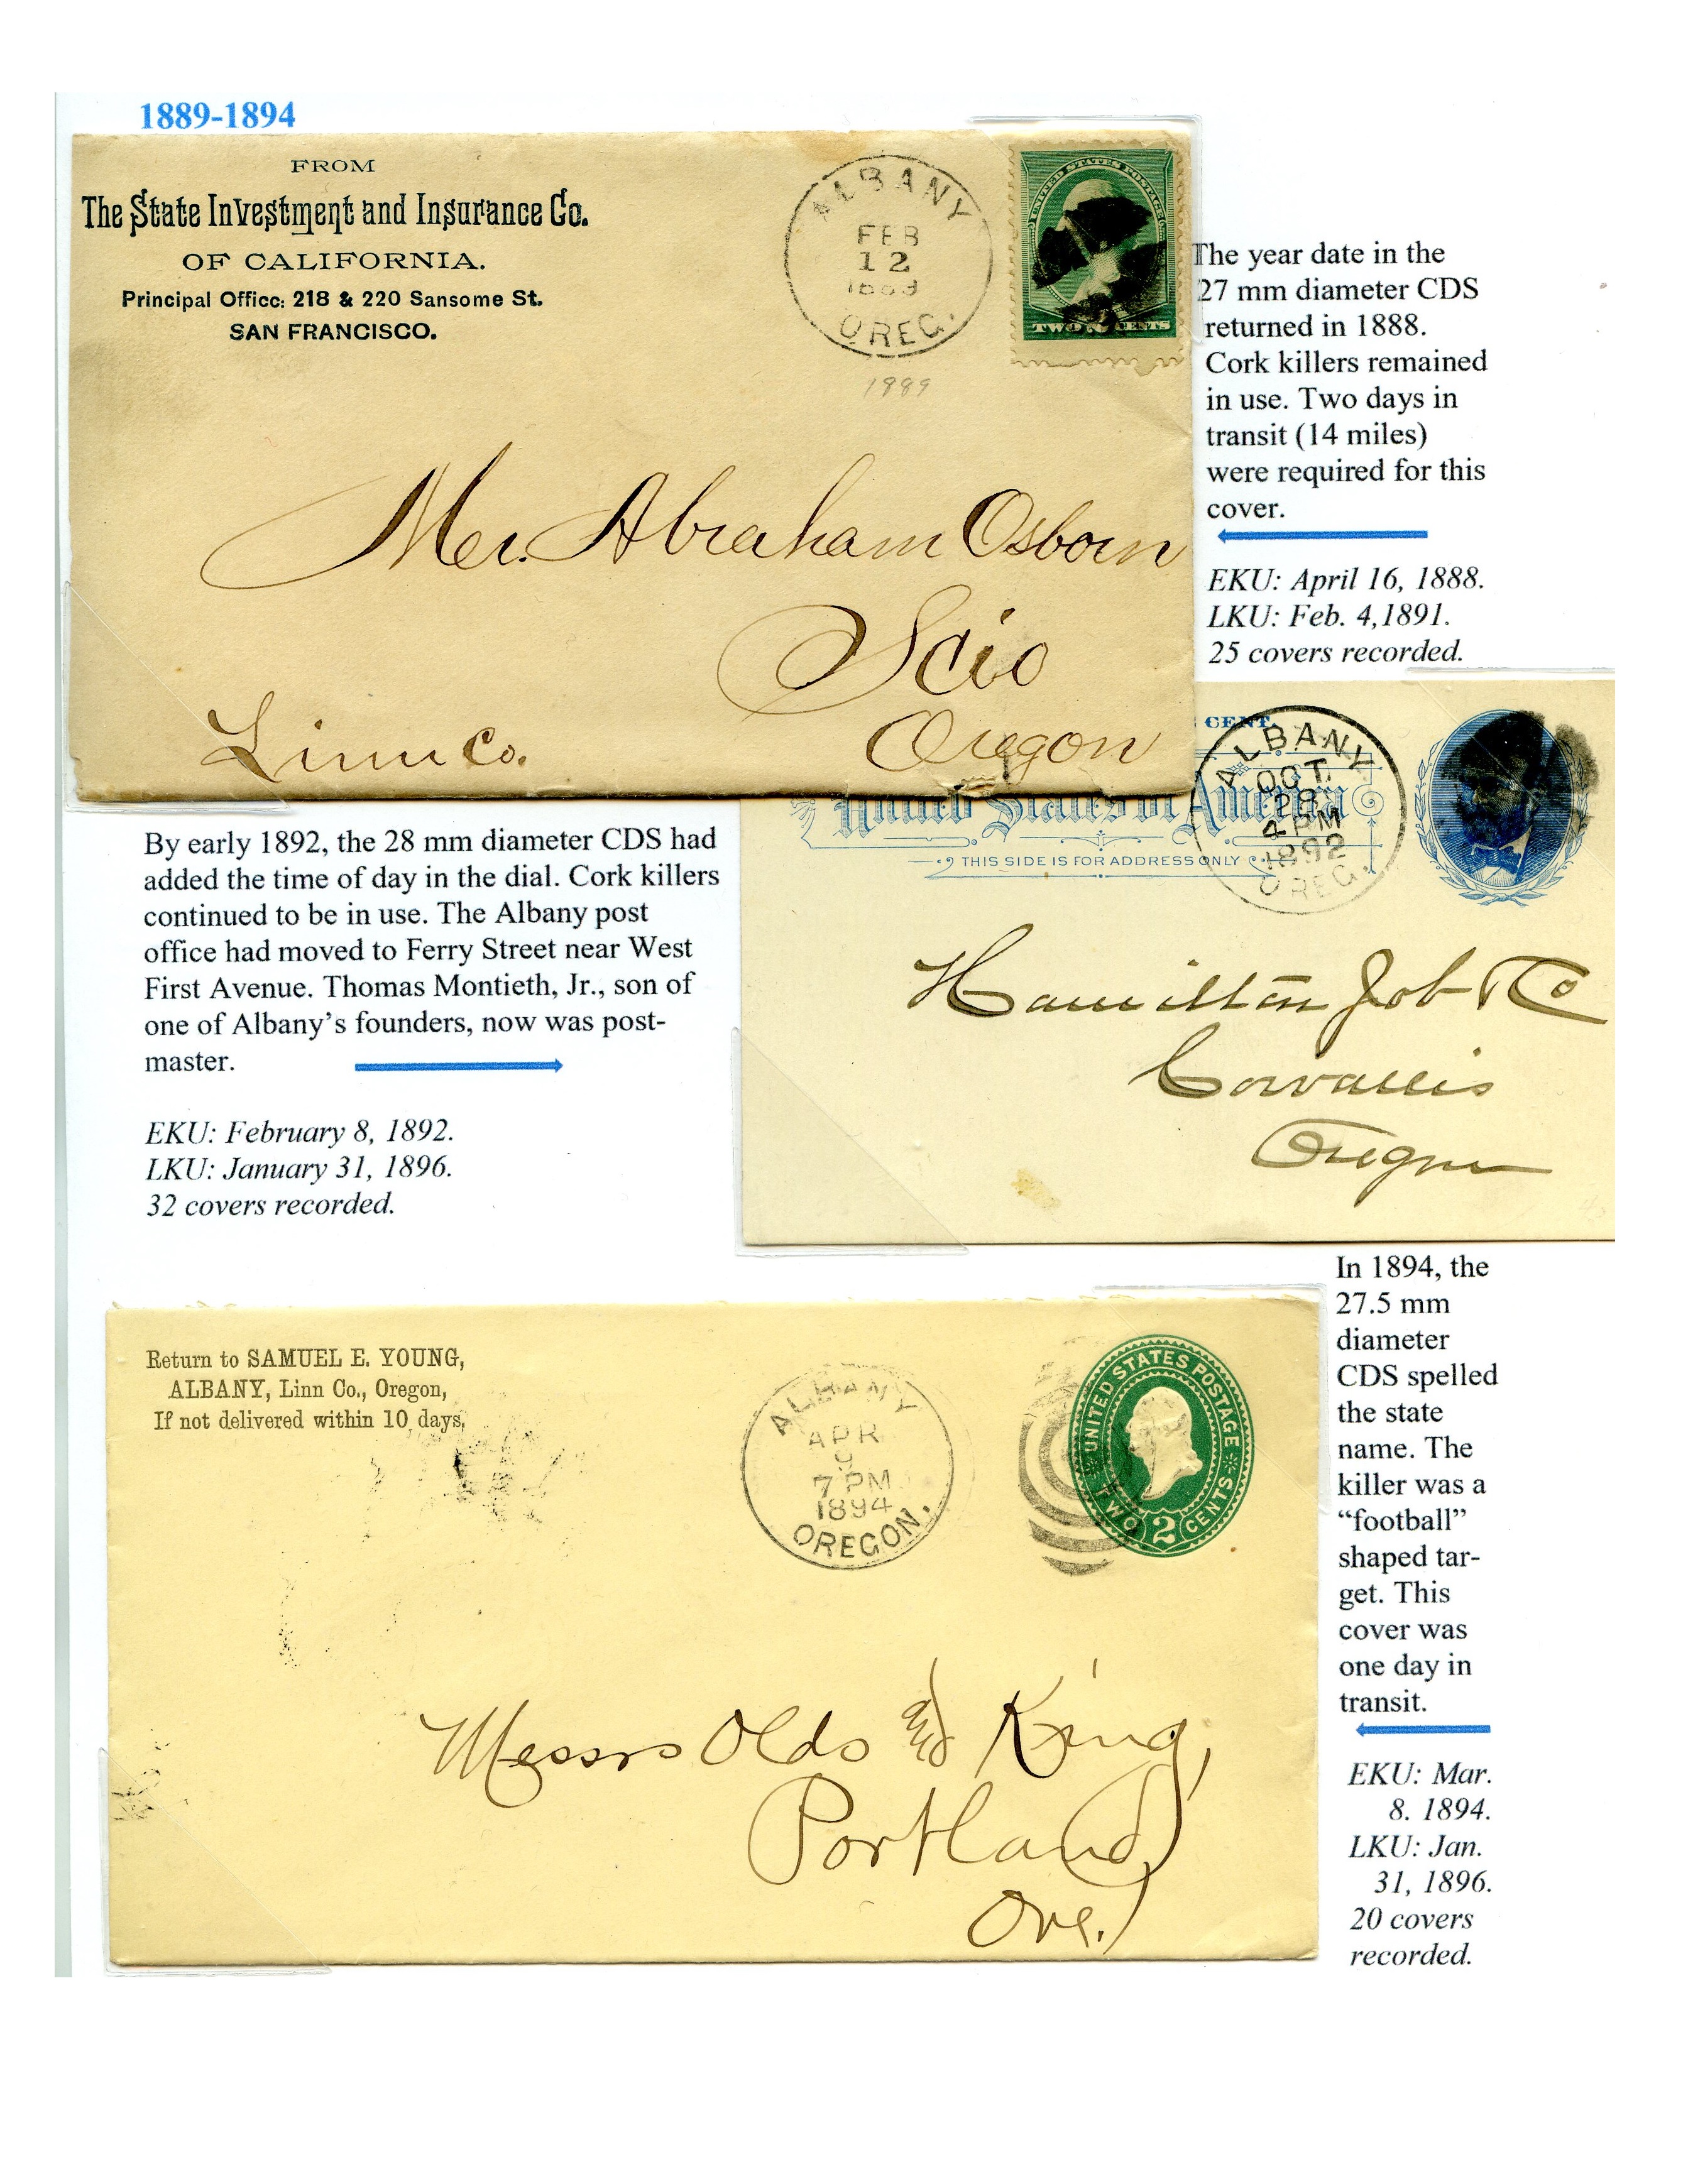 1889-1894
FROM
The State Investment and Insurance Co.
OF CALIFORNIA.
Principal Office: 218 & 220 Sansome St.
SAN FRANCISCO.
ALBANY
FEB
12
1889
OREG.
1889
UNITED STATES POSTAGE
TWO 2 CENTS
Mr. Abraham Osborn
Scio
Linn Co.
Oregon
The year date in the
27 mm diameter CDS
returned in 1888.
Cork killers remained
in use. Two days in
transit (14 miles)
were required for this
cover.
EKU: April 16, 1888.
LKU: Feb. 4,1891.
25 covers recorded.
CENT.
United States of America
THIS SIDE IS FOR ADDRESS ONLY
ALBANY
OCT.
28
4 PM
1892
OREG.
Hamilton Job & Co
Corvallis
Oregon
By early 1892, the 28 mm diameter CDS had
added the time of day in the dial. Cork killers
continued to be in use. The Albany post
office had moved to Ferry Street near West
First Avenue. Thomas Montieth, Jr., son of
one of Albany's founders, now was post-
master.
EKU: February 8, 1892.
LKU: January 31, 1896.
32 covers recorded.
Return to SAMUEL E. YOUNG,
ALBANY, Linn Co., Oregon,
If not delivered within 10 days.
ALBANY
APR
9
7 PM
1894
OREGON.
UNITED STATES POSTAGE
TWO 2 CENTS
Messrs Olds and King,
Portland
Ore.
In 1894, the
27.5 mm
diameter
CDS spelled
the state
name. The
killer was a
“football”
shaped tar-
get. This
cover was
one day in
transit.
EKU: Mar.
8. 1894.
LKU: Jan.
31, 1896.
20 covers
recorded.